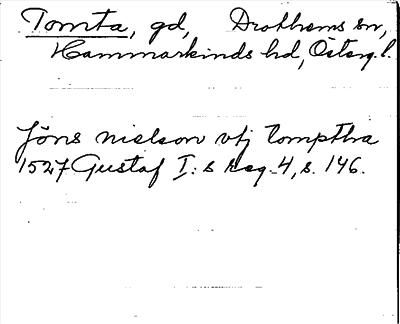 Tomta, gd, Drothems sn,
Hammarkinds hd, Österg. l.
Jöns nielson vtj tomptha
1527 Gustaf I:s Reg. 4, s. 146.